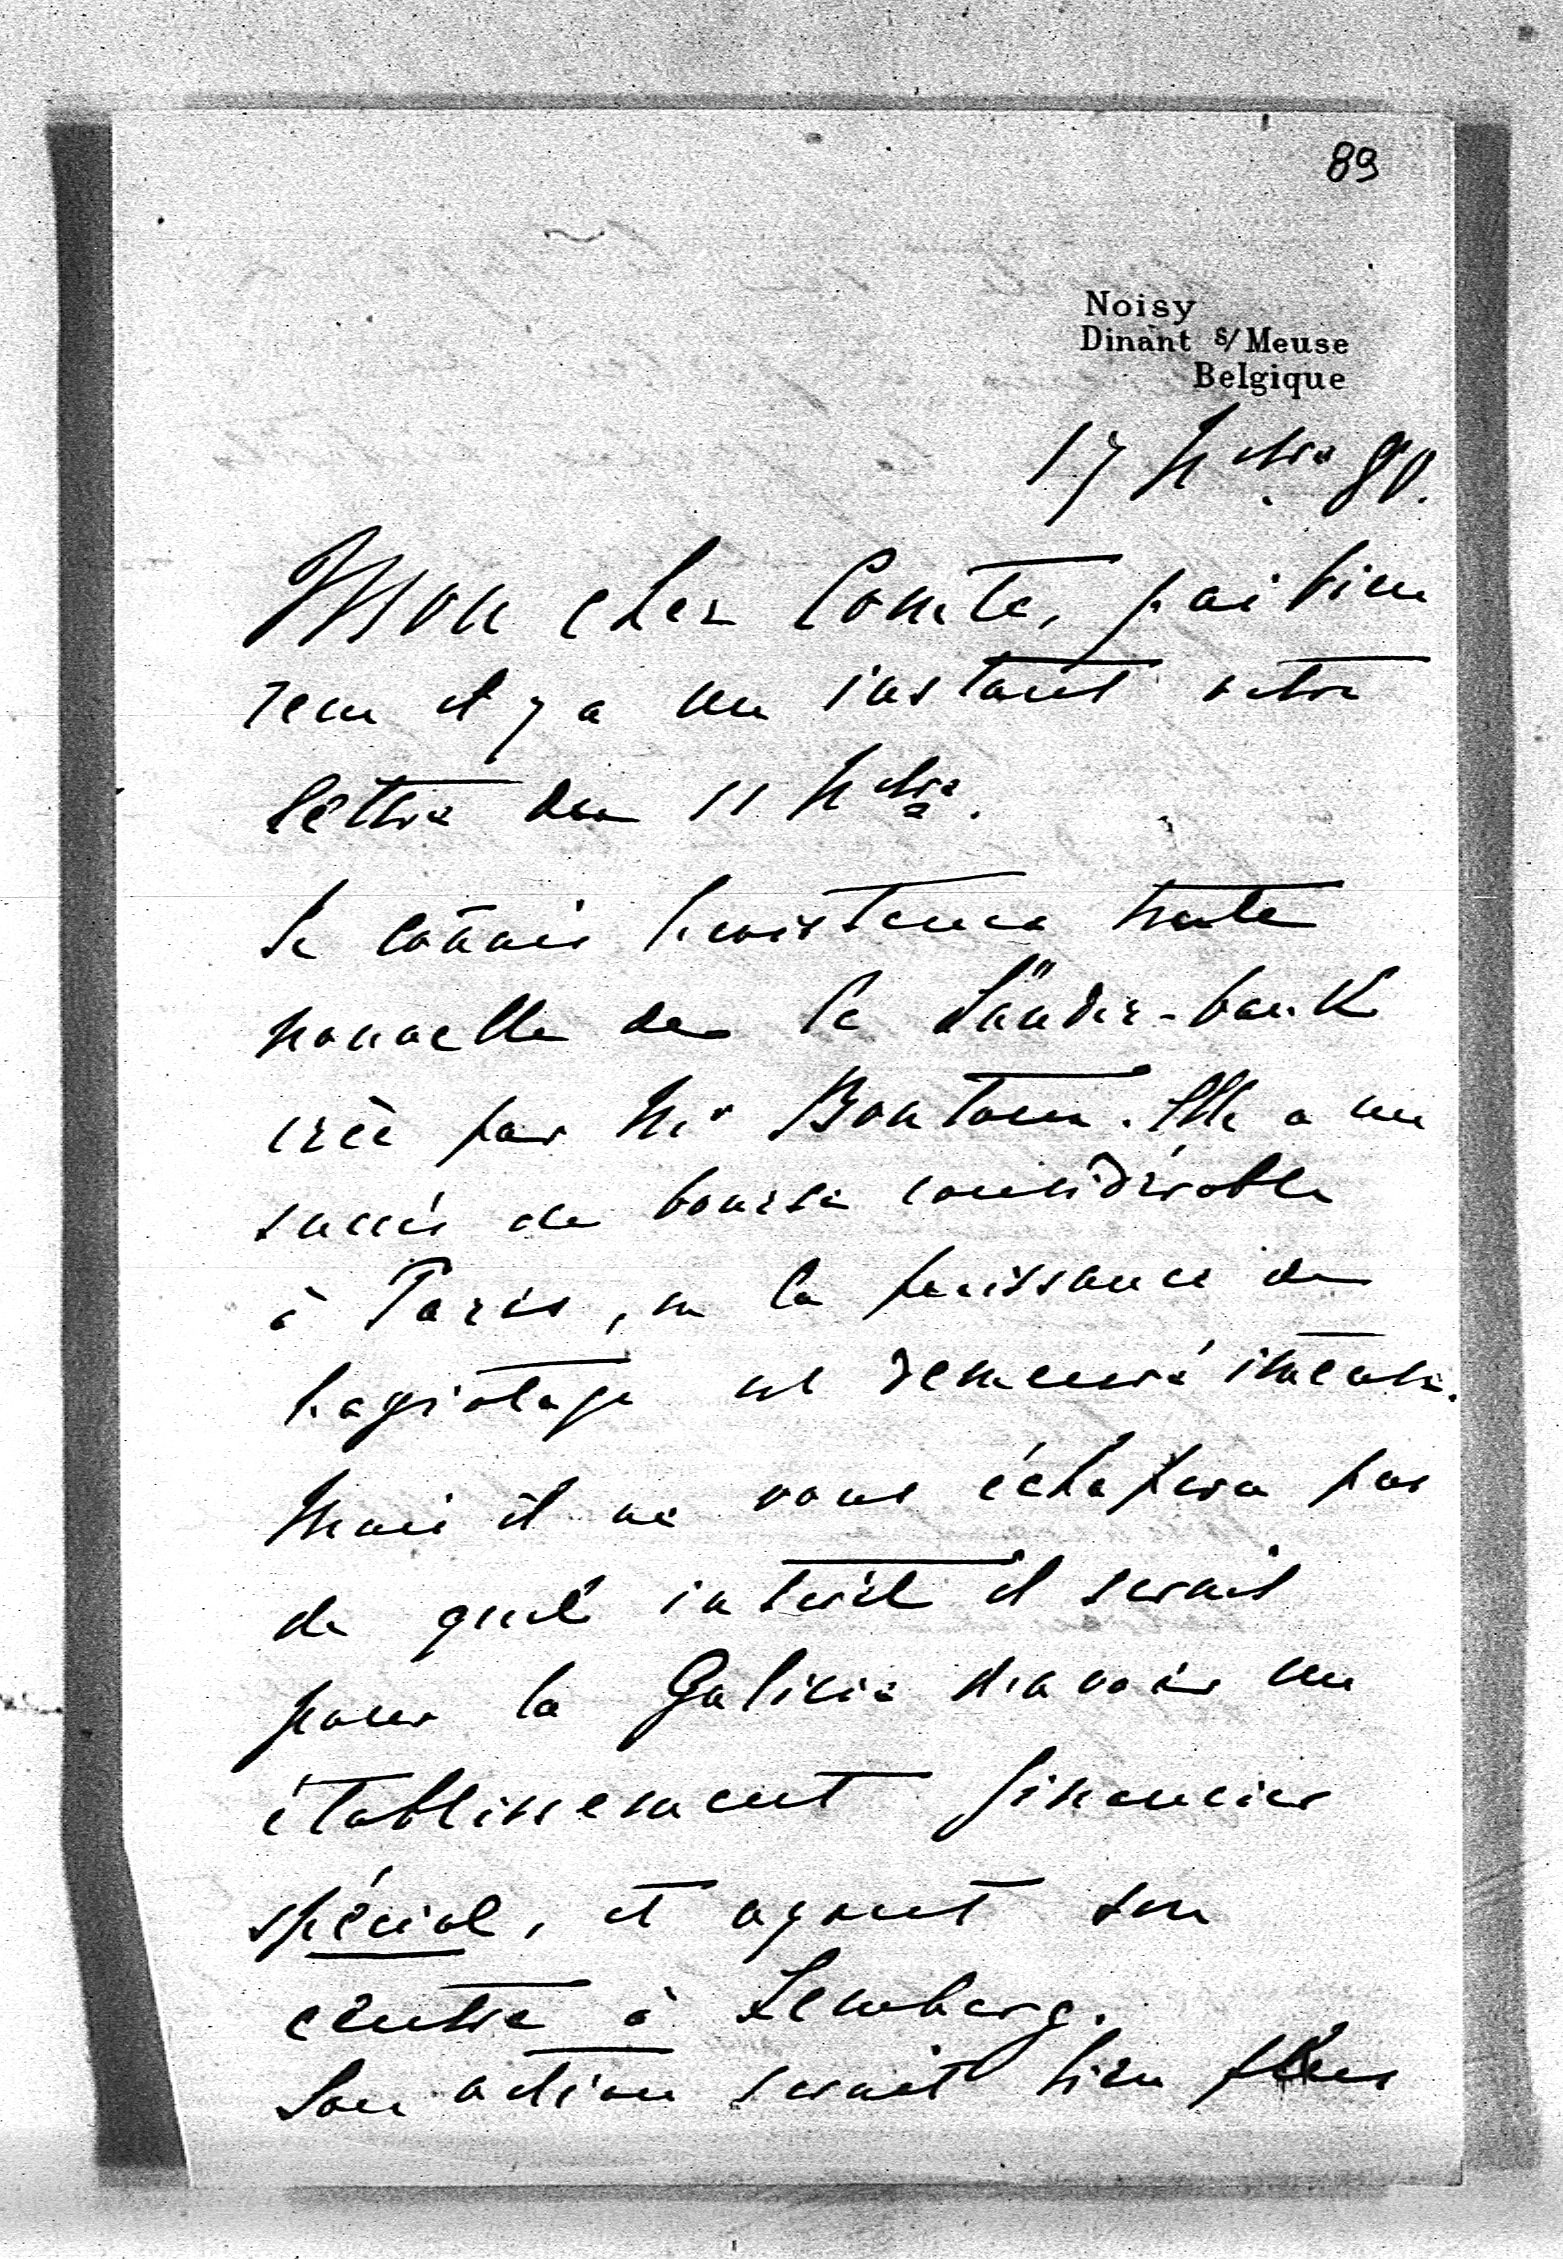 89
Noisy
Dinant s/ Meuse
Belgique
17 Nbre 80.
Mon cher Comte, j'ai bien
reçu il y a un instant votre
lettre du 11 Nbre.
Je connais l'existence toute
nouvelle de la Länder-bank
créé par Mr Bontoux. Elle a un
succès de bourse considérable
à Paris, où la puissance de
l'agiotage est demeuré intense.
Mais il ne vous échapera pas
de quel intérêt il serait
pour la Galicie d'avoir un
établissement financier
spécial, et ayant son
centre à Lemberg.
Son action serait bien plus